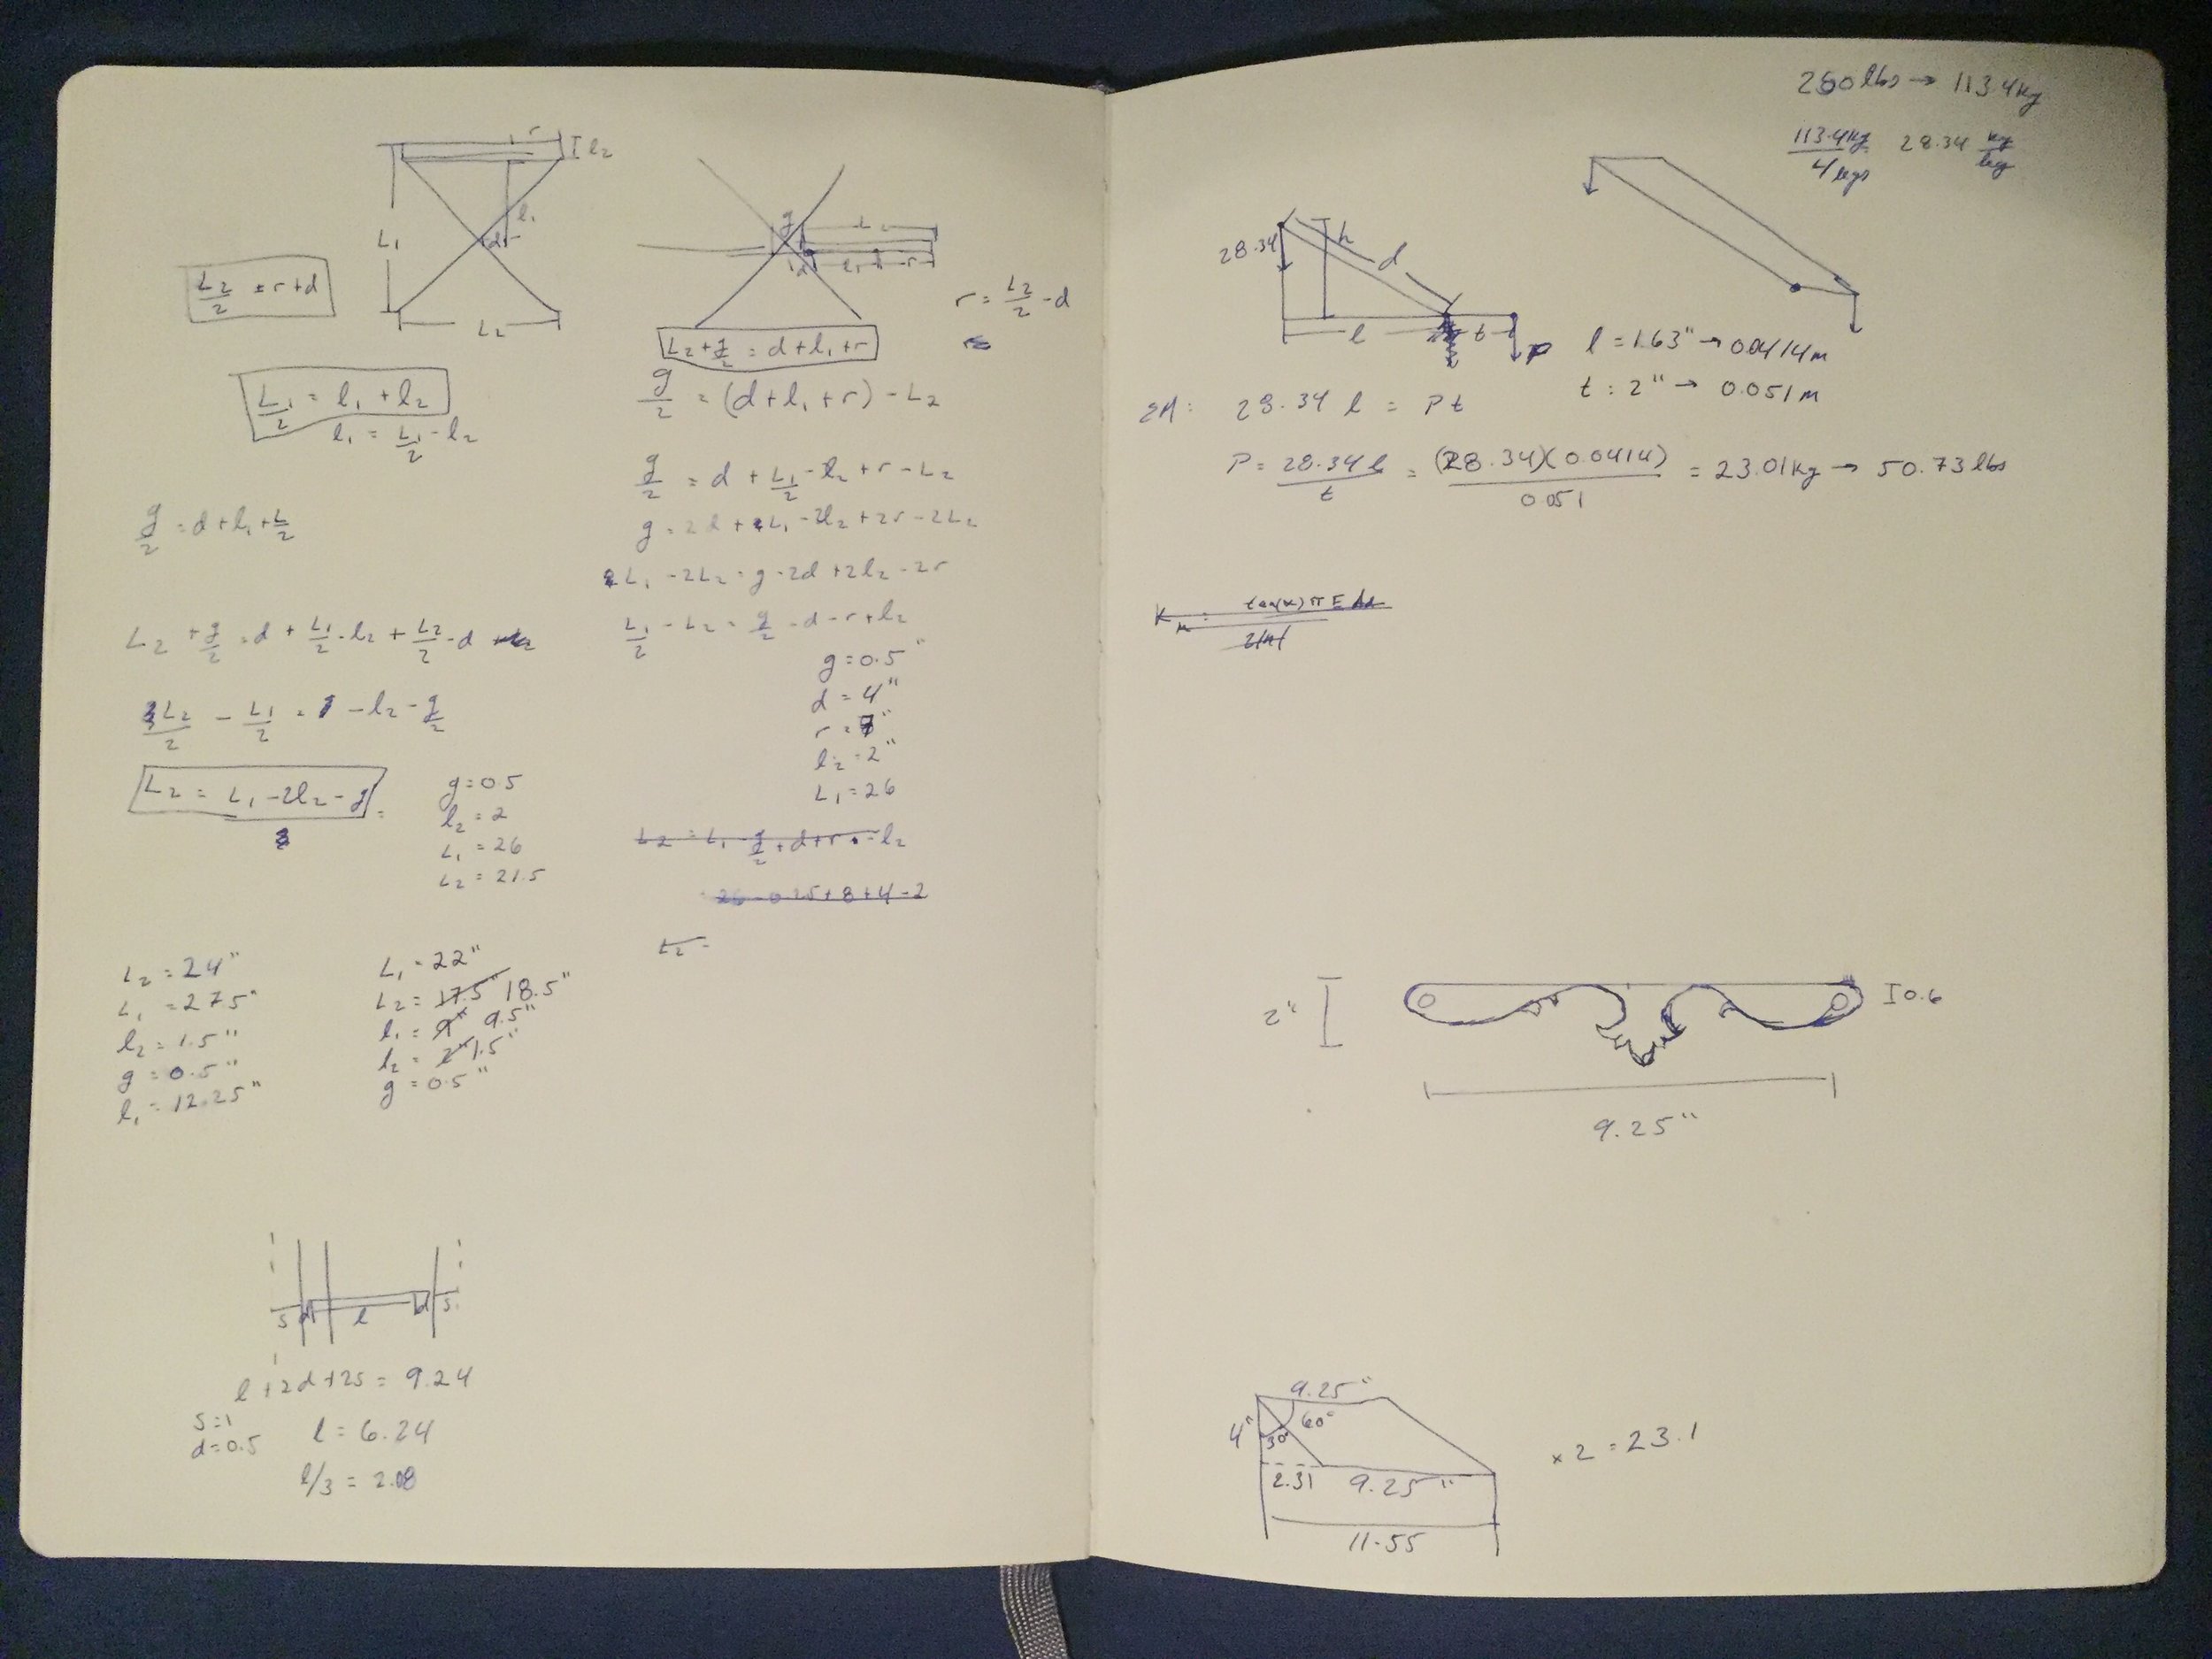 r
l₂
L₁
l₁
d
L₂
L₂/2 = r+d
L₁/2 = l₁ + l₂
l₁ = L₁/2 - l₂
g/2 = d + l₁ + L/2
L₂ + g/2 = d + L₁/2 - l₂ + L₂/2 - d
3L₂/2 - L₁/2 = - l₂ - g/2
L₂ = L₁ - 2l₂ - g =
g = 0.5
l₂ = 2
L₁ = 26
L₂ = 21.5
L₂ = 24"
L₁ = 27.5"
l₂ = 1.5"
g = 0.5"
l₁ = 12.25"
L₁ = 22"
L₂ = 17.5" 18.5"
l₁ = 9" 9.5"
l₂ = 2" 1.5"
g = 0.5"
s d l d s
l + 2d + 2s = 9.24
s = 1
d = 0.5
l = 6.24
l/3 = 2.08
g
L₂
d l₁ r
r = L₂/2 - d
L₂ + g/2 = d + l₁ + r
g/2 = (d + l₁ + r) - L₂
g/2 = d + L₁/2 - l₂ + r - L₂
g = 2d + L₁ - 2l₂ + 2r - 2L₂
L₁ - 2L₂ = g - 2d + 2l₂ - 2r
L₁/2 - L₂ = g/2 - d - r + l₂
g = 0.5"
d = 4"
r = 7"
l₂ = 2"
L₁ = 26
L₂ = L₁ - g/2 + d + r - l₂
26 - 0.25 + 8 + 4 - 2
L₂ =
250 lbs → 113.4 kg
113.4 kg / 4 legs 28.34 kg/leg
28.34
h
d
l
t
P
l = 1.63" → 0.0414 m
t : 2" → 0.051 m
ΣM: 28.34 l = P t
P = 28.34 l / t = (28.34)(0.0414) / 0.051 = 23.01 kg → 50.73 lbs
2"
0.6
9.25"
9.25"
4"
60°
30°
2.31
9.25"
11.55
× 2 = 23.1